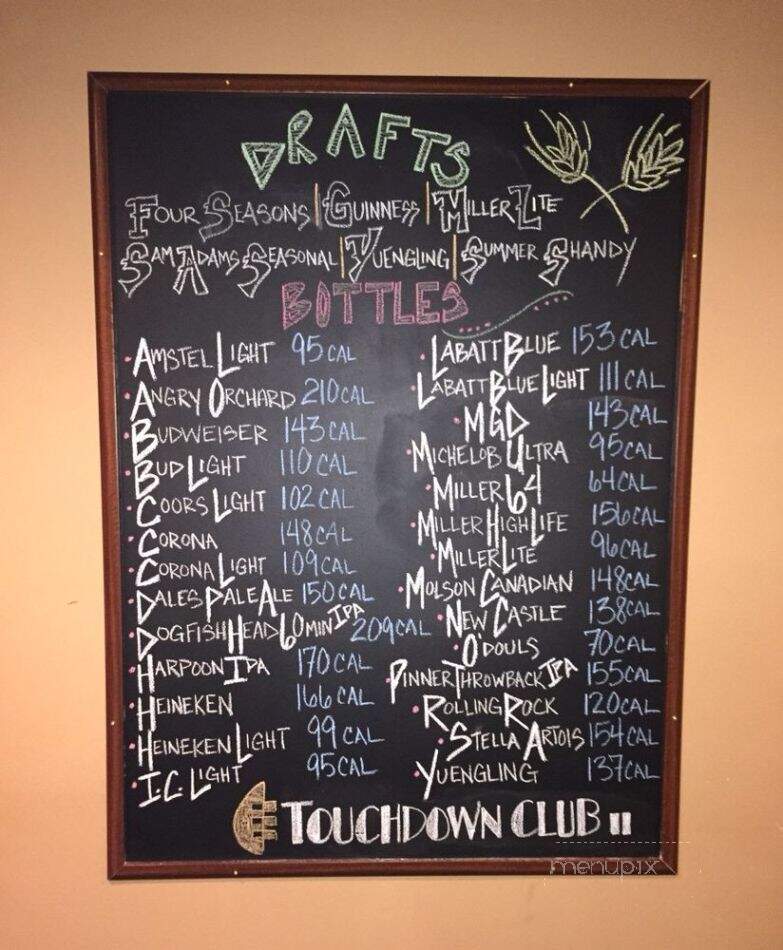 DRAFTS
FOUR SEASONS | GUINNESS | MILLER LITE
SAM ADAMS SEASONAL | YUENGLING | SUMMER SHANDY
BOTTLES
AMSTEL LIGHT 95 CAL
ANGRY ORCHARD 210 CAL
BUDWEISER 143 CAL
BUD LIGHT 110 CAL
COORS LIGHT 102 CAL
CORONA 148 CAL
CORONA LIGHT 109 CAL
DALES PALE ALE 150 CAL
DOGFISH HEAD 60 MIN IPA 209 CAL
HARPOON IPA 170 CAL
HEINEKEN 166 CAL
HEINEKEN LIGHT 99 CAL
I.C. LIGHT 95 CAL
LABATT BLUE 153 CAL
LABATT BLUE LIGHT 111 CAL
MGD 143 CAL
MICHELOB ULTRA 95 CAL
MILLER 64 64 CAL
MILLER HIGH LIFE 156 CAL
MILLER LITE 96 CAL
MOLSON CANADIAN 148 CAL
NEW CASTLE 138 CAL
O'DOULS 70 CAL
PINNER THROWBACK IPA 155 CAL
ROLLING ROCK 120 CAL
STELLA ARTOIS 154 CAL
YUENGLING 137 CAL
TOUCHDOWN CLUB II
menupix